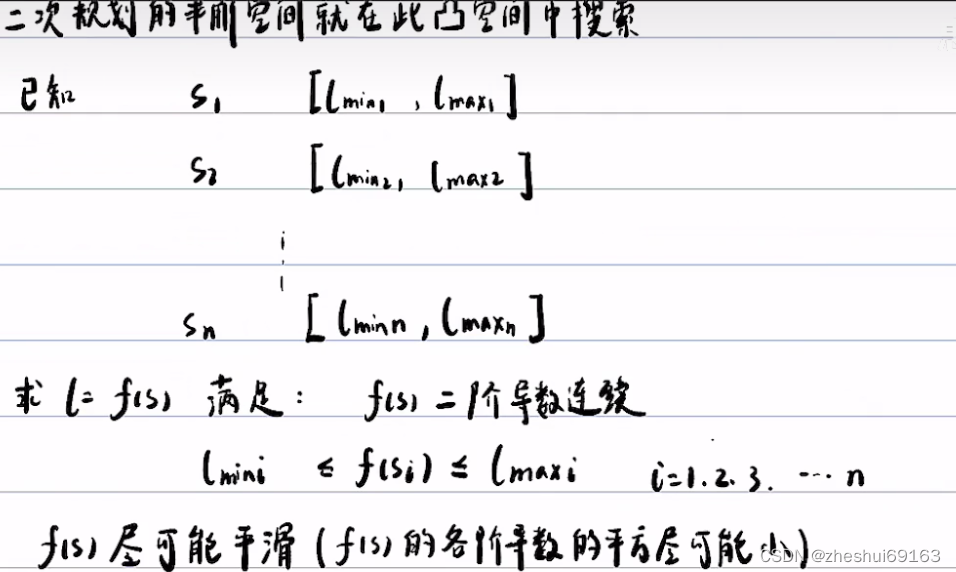 二次规划的求解空间就在此凸空间中搜索
已知 S₁ [lmin₁, lmax₁]
S₂ [lmin₂, lmax2]
⋮
Sn [lminn, lmaxn]
求 l = f(s) 满足: f(s) 二阶导数连续
lmini ≤ f(si) ≤ lmaxi i=1.2.3. ⋯ n
f(s) 尽可能平滑 (f(s) 的各阶导数的平方尽可能小)
CSDN @zheshui69163